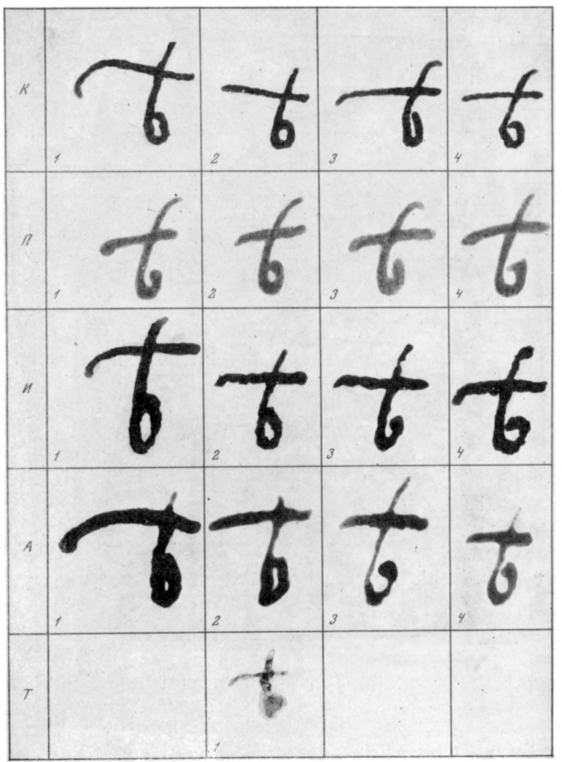 К ѣ ѣ ѣ ѣ
1 2 3 4
П ѣ ѣ ѣ ѣ
1 2 3 4
И ѣ ѣ ѣ ѣ
1 2 3 4
А ѣ ѣ ѣ ѣ
1 2 3 4
Т ѣ
1